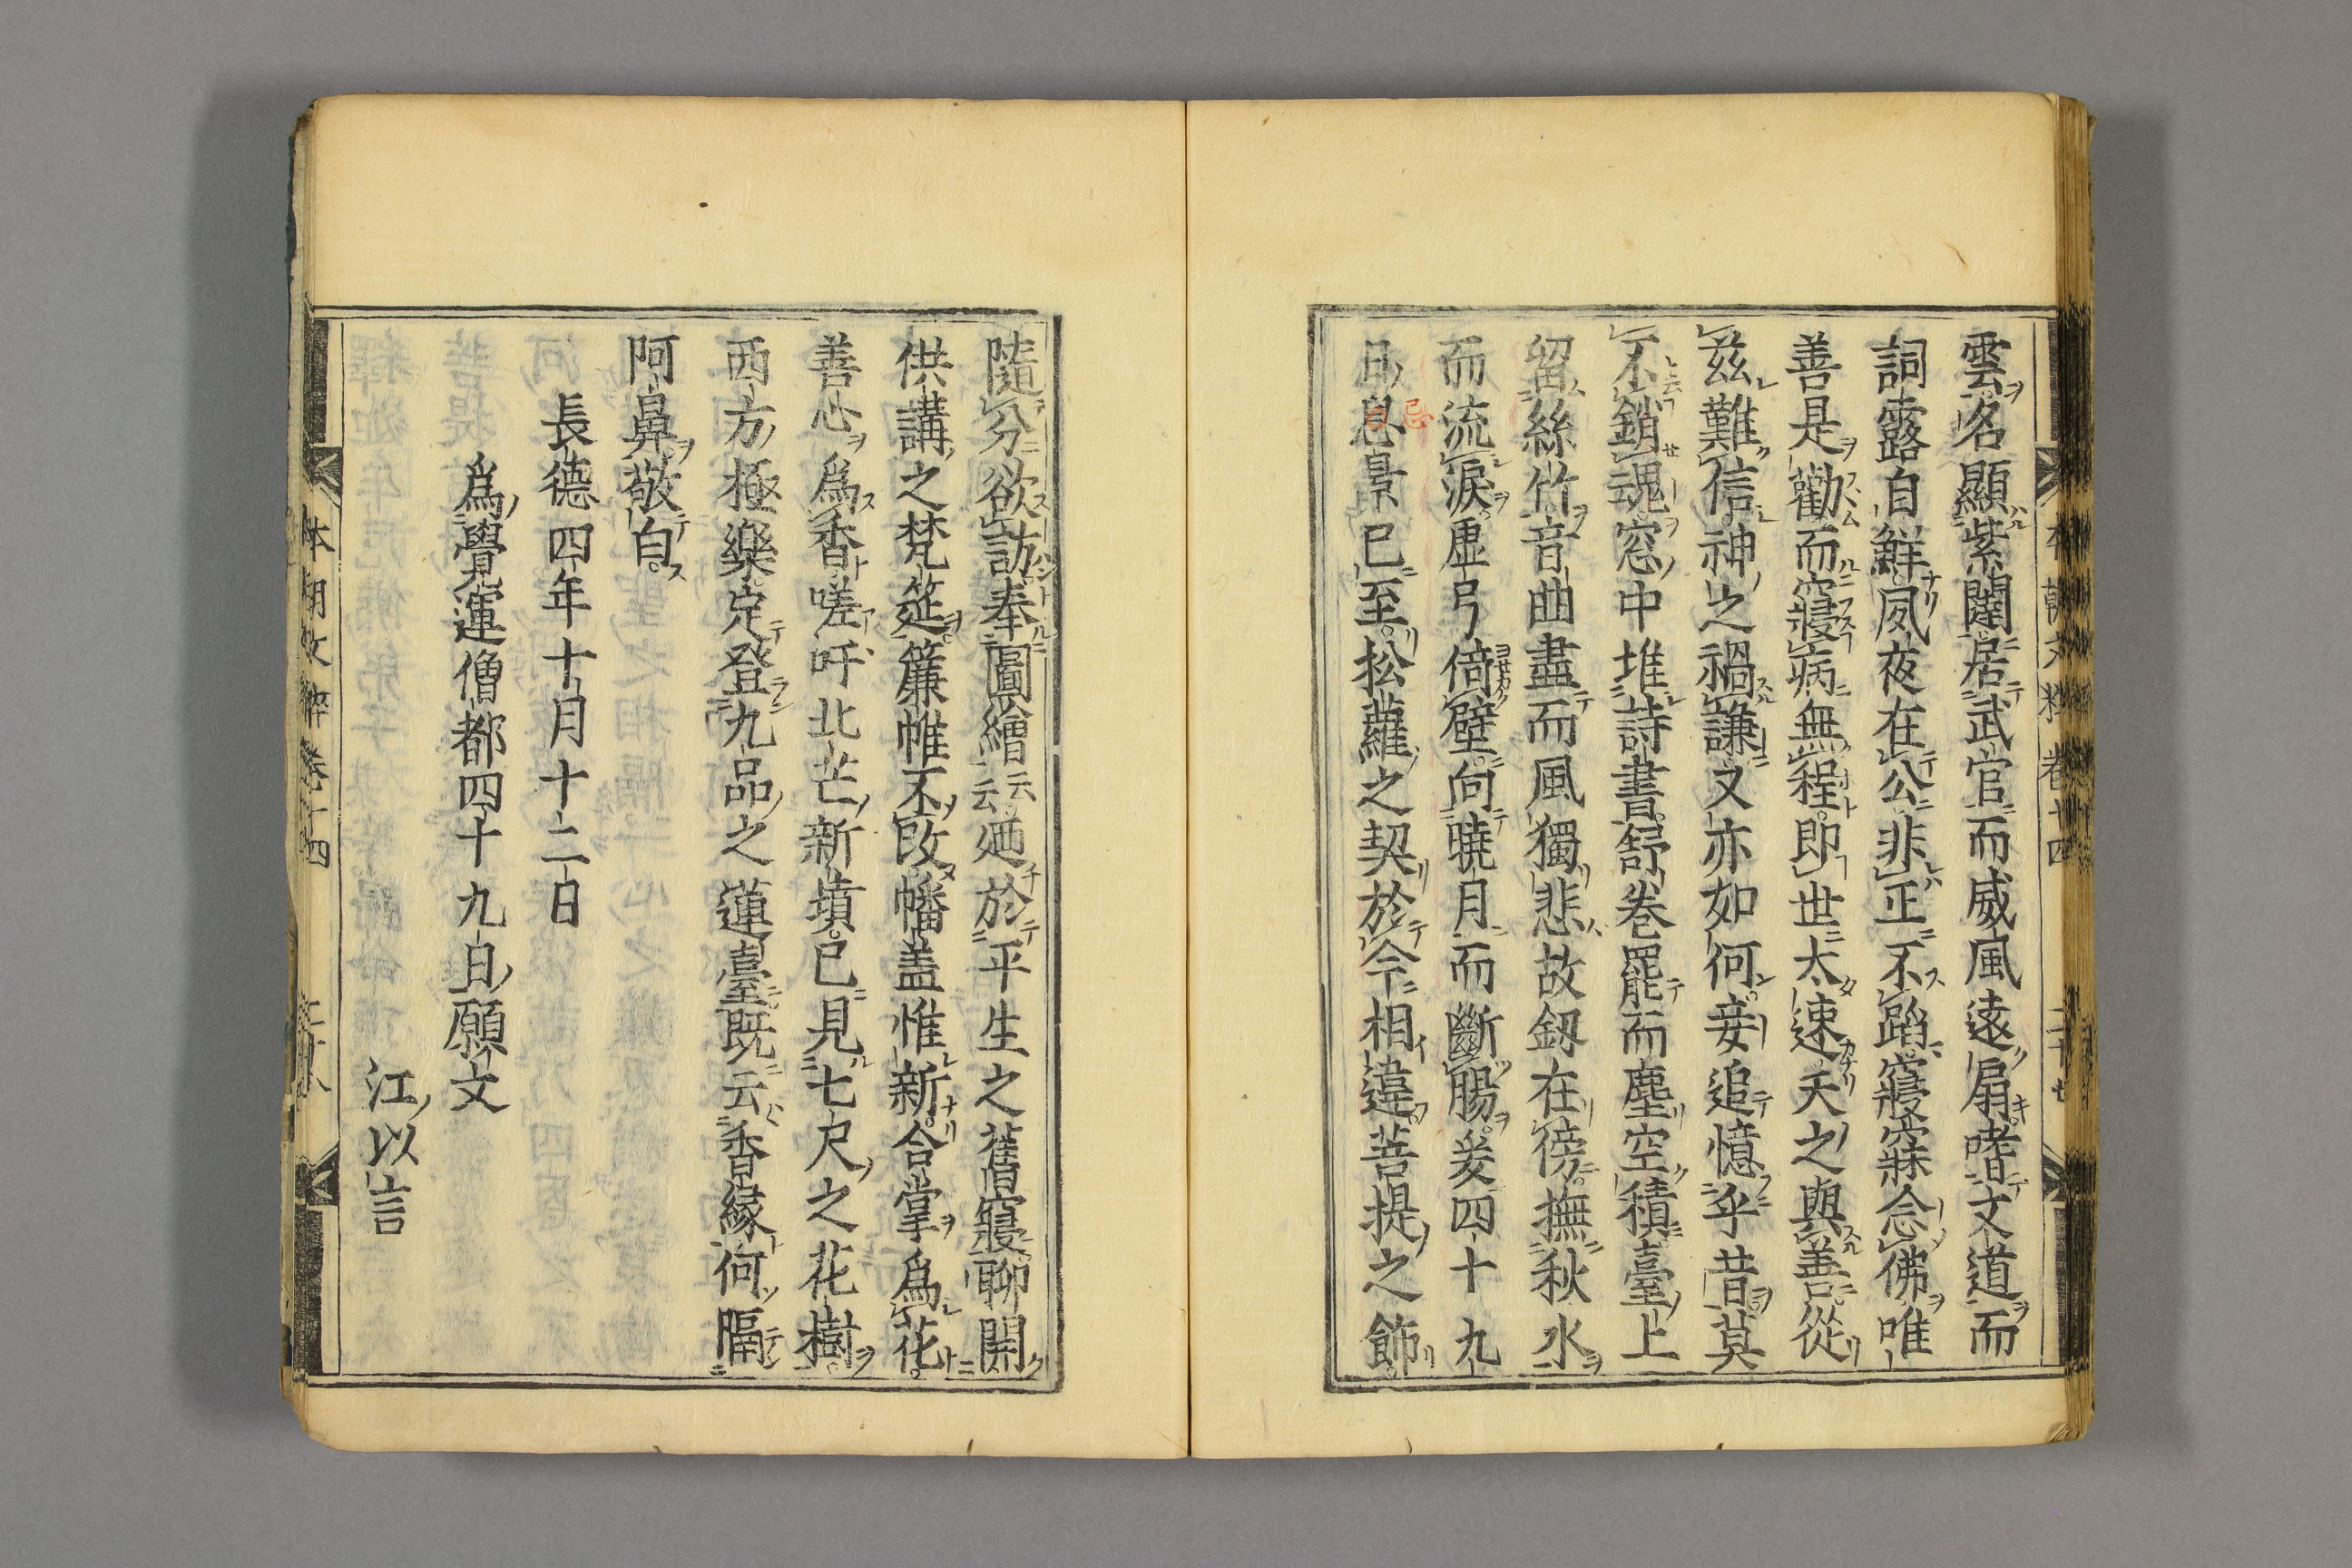 雲名顯紫闥居武官而威風遠扇嗜文道而
詞露自鮮夙夜在公非正不蹈寢寐念佛唯
善是勸而寢病無程即世太速天之與善從
茲難信神之禍謙又亦如何妾追憶乎昔莫
不鎖魂窓中堆詩書舒卷罷而塵空積臺上
留絲竹音曲盡而風獨悲故釼在傍撫秋水
而流淚虛弓倚壁向曉月而斷腸爰四十九
日忌景已至松蘿之契於今相違菩提之餝
忌
本朝文粹卷十四
隨分欲訪奉圖繪云云廼於平生之舊寢聊開
供講之梵筵簾帷不改幡盖惟新合掌爲花
善心爲香嗟呼北芒新墳已見七尺之花樹
西方極樂定登九品之蓮臺既云香緣何隔
阿鼻敬白
長德四年十月十二日
爲覺運僧都四十九日願文
江以言
本朝文粹卷十四